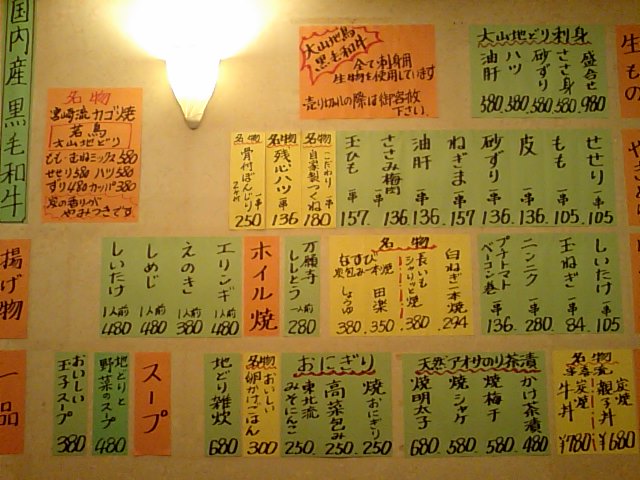 国内産 黒毛和牛
名物
宮崎流カゴ焼
若鳥
大山地どり
もも・むねミックス580
せせり580 ハツ580
ずり480カッパ380
炭の香りが
やみつきです
大山地鳥
黒毛和牛
全て刺身用
生物を使用しています
売り切れの際は御容赦
下さい。
大山地どり刺身
盛合せ 980
ささ身 580
砂ずり 580
ハツ 580
油肝 380
生もの
せせり 一串 105
もも 一串 105
皮 一串 136
砂ずり 一串 136
ねぎま 一串 157
油肝 一串 136
ささみ梅肉 136
玉ひも 一串 157
名物 こだわり 自家製つくね 一串 180
名物 残心ハツ 一串 136
名物 骨付ぼんじり 一串 250
しいたけ 一串 105
玉ねぎ 一串 84
ニンニク 一串 280
プチトマトベーコン巻 一串 136
名物
白ねぎ一本焼 294
長いもシャリッと焼 380
なすび炭包み一本焼
田楽 350
しょうゆ 380
万願寺ししとう 1人前 280
ホイル焼
エリンギ 1人前 480
えのき 1人前 380
しめじ 1人前 480
しいたけ 1人前 480
揚げ物
名物
炭焼親子丼 ¥680
炭焼牛丼 ¥780
天然アオサのり茶漬
かけ茶漬 480
焼梅干 580
焼シャケ 580
焼明太子 680
おにぎり
焼おにぎり 250
高菜包み 250
東北流みそにんにく 250
名物 おいしい卵かけごはん 300
地どり雑炊 680
スープ
地どりと野菜のスープ 480
おいしい玉子スープ 380
一品